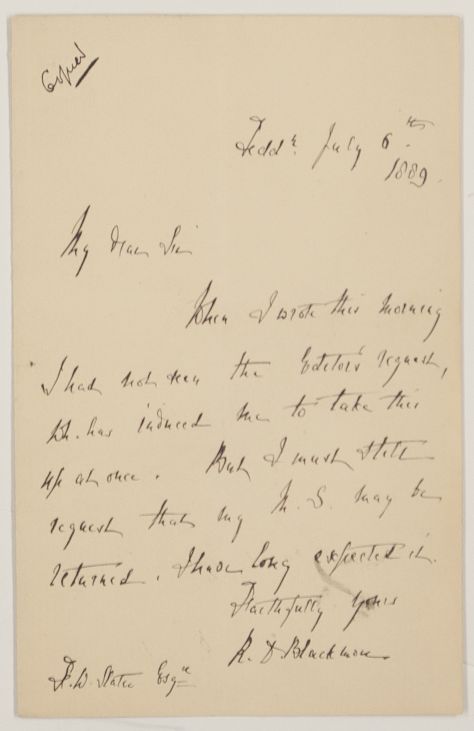 Copied
Tedd^n. July 6^th.
1889.
My dear Sir
When I wrote this morning
I had not seen the Editor's request,
wh. has induced me to take this
up at once. But I must still
request that my M. S. may be
returned. I have long expected it.
Faithfully yours
R. D. Blackmore.
F. W. Slater Esq^re